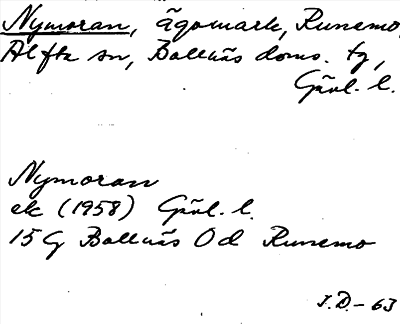 Nymoran, ägomark, Runemo,
Alfta sn, Bollnäs doms. tg,
Gävl. l.
Nymoran
ek (1958) Gävl. l.
15 G Bollnäs Od Runemo
I.D. - 63